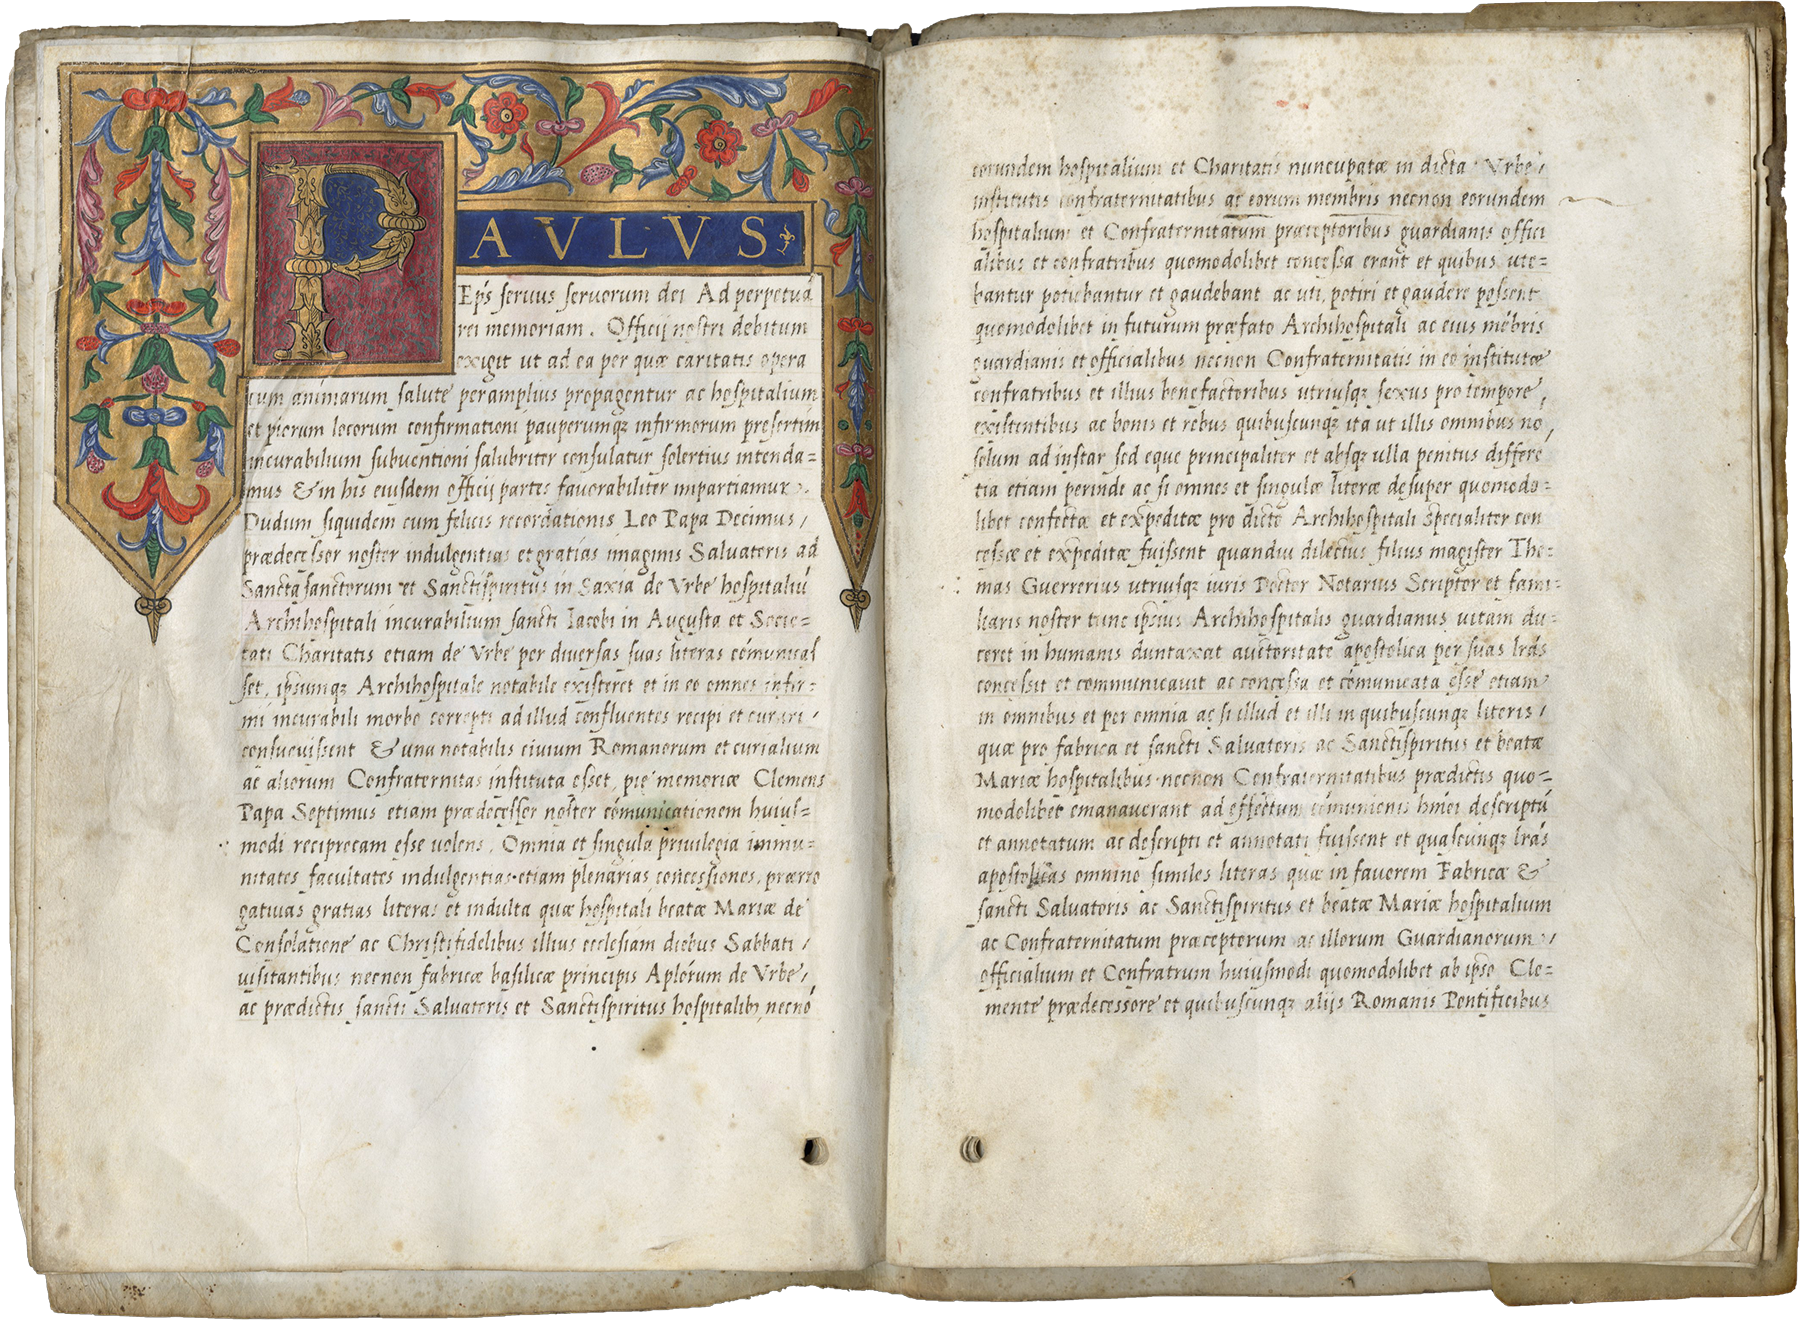 PAVLVS
Ep's seruus seruorum dei Ad perpetuā
rei memoriam. Officij nostri debitum
exigit ut ad ea per quæ caritatis opera
cum animarum salute peramplius propagentur ac hospitalium
et piorum locorum confirmationi pauperumq; infirmorum presertim
incurabilium subuentioni salubriter consulatur solertius intenda=
mus & in his eiusdem officij partes fauorabiliter impartiamur.
Dudum siquidem cum felicis recordationis Leo Papa Decimus /
prædecessor noster indulgentias et gratias imaginis Saluatoris ad
Sancta sanctorum et Sanctispiritus in Saxia de Vrbe hospitaliū
Archihospitali incurabilium sancti Iacobi in Augusta et Socie=
tati Charitatis etiam de Vrbe per diuersas suas literas cōmunicas
set, ipsumq; Archihospitale notabile existeret et in eo omnes infir=
mi incurabili morbo correpti ad illud confluentes recipi et curari /
consueuissent & una notabilis ciuium Romanorum et curialium
ac aliorum Confraternitas instituta esset, pię memoriæ Clemens
Papa Septimus etiam prædecessor noster cōmunicationem huius=
modi reciprocam esse uolens, Omnia et singula priuilegia immu=
nitates facultates indulgentias etiam plenarias concessiones, prærro
gatiuas gratias literas et indulta quæ hospitali beatæ Mariæ de
Consolatione ac Christifidelibus illius ecclesiam diebus Sabbati /
uisitantibus necnon fabricæ basilicæ principis Aplōrum de Vrbe /
ac prædictis sancti Saluatoris et Sanctispiritus hospitalib; necnō
eorundem hospitalium et Charitatis nuncupatæ in dicta Vrbe /
institutis confraternitatibus ac eorum membris necnon eorundem
hospitalium et Confraternitatum præceptoribus guardianis offici
alibus et confratribus quomodolibet concessa erant et quibus ute=
bantur potiebantur et gaudebant ac uti, potiri et gaudere possent
quomodolibet in futurum præfato Archihospitali ac eius mēbris
guardianis et officialibus necnon Confraternitatis in eo institutæ
confratribus et illius benefactoribus utriusq; sexus pro tempore
existentibus ac bonis et rebus quibuscunq; ita ut illis omnibus no,
solum ad instar sed eque principaliter et absq; ulla penitus differē
tia etiam perinde ac si omnes et singulæ literæ desuper quomodo=
libet confectæ et expeditæ pro dicto Archihospitali specialiter con
cessæ et expeditæ fuissent quandiu dilectus filius magister Tho=
mas Guerrerius utriusq; iuris Doctor Notarius Scriptor et fami
liaris noster tunc ipsius Archihospitalis guardianus uitam du=
ceret in humanis duntaxat auctoritate apostolica per suas lr̄as
concessit et communicauit ac concessa et cōmunicata esse etiam
in omnibus et per omnia ac si illud et illi in quibuscunq; literis /
quæ pro fabrica et sancti Saluatoris ac Sanctispiritus et beatæ
Mariæ hospitalibus necnon Confraternitatibus prædictis quo=
modolibet emanauerant ad effectum cōmunionis hmōi descriptū
et annotatum ac descripti et annotati fuissent et quascunq; lr̄as
apostolicas omnino similes literas quæ in fauorem Fabricæ &
sancti Saluatoris ac Sanctispiritus et beatæ Mariæ hospitalium
ac Confraternitatum præceptorum ac illorum Guardianorum /
officialium et Confratrum huiusmodi quomodolibet ab ipso Cle=
mente prædecessore et quibuscunq; alijs Romanis Pontificibus